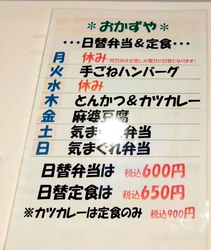 *おかずや*
・・・日替弁当&定食・・・
月 休み
火 手ごねハンバーグ
水 休み
木 とんかつ&カツカレー
金 麻婆豆腐
土 気まぐれ弁当
日 気まぐれ弁当
日替弁当は 税込600円
日替定食は 税込650円
※カツカレーは定食のみ 税込900円